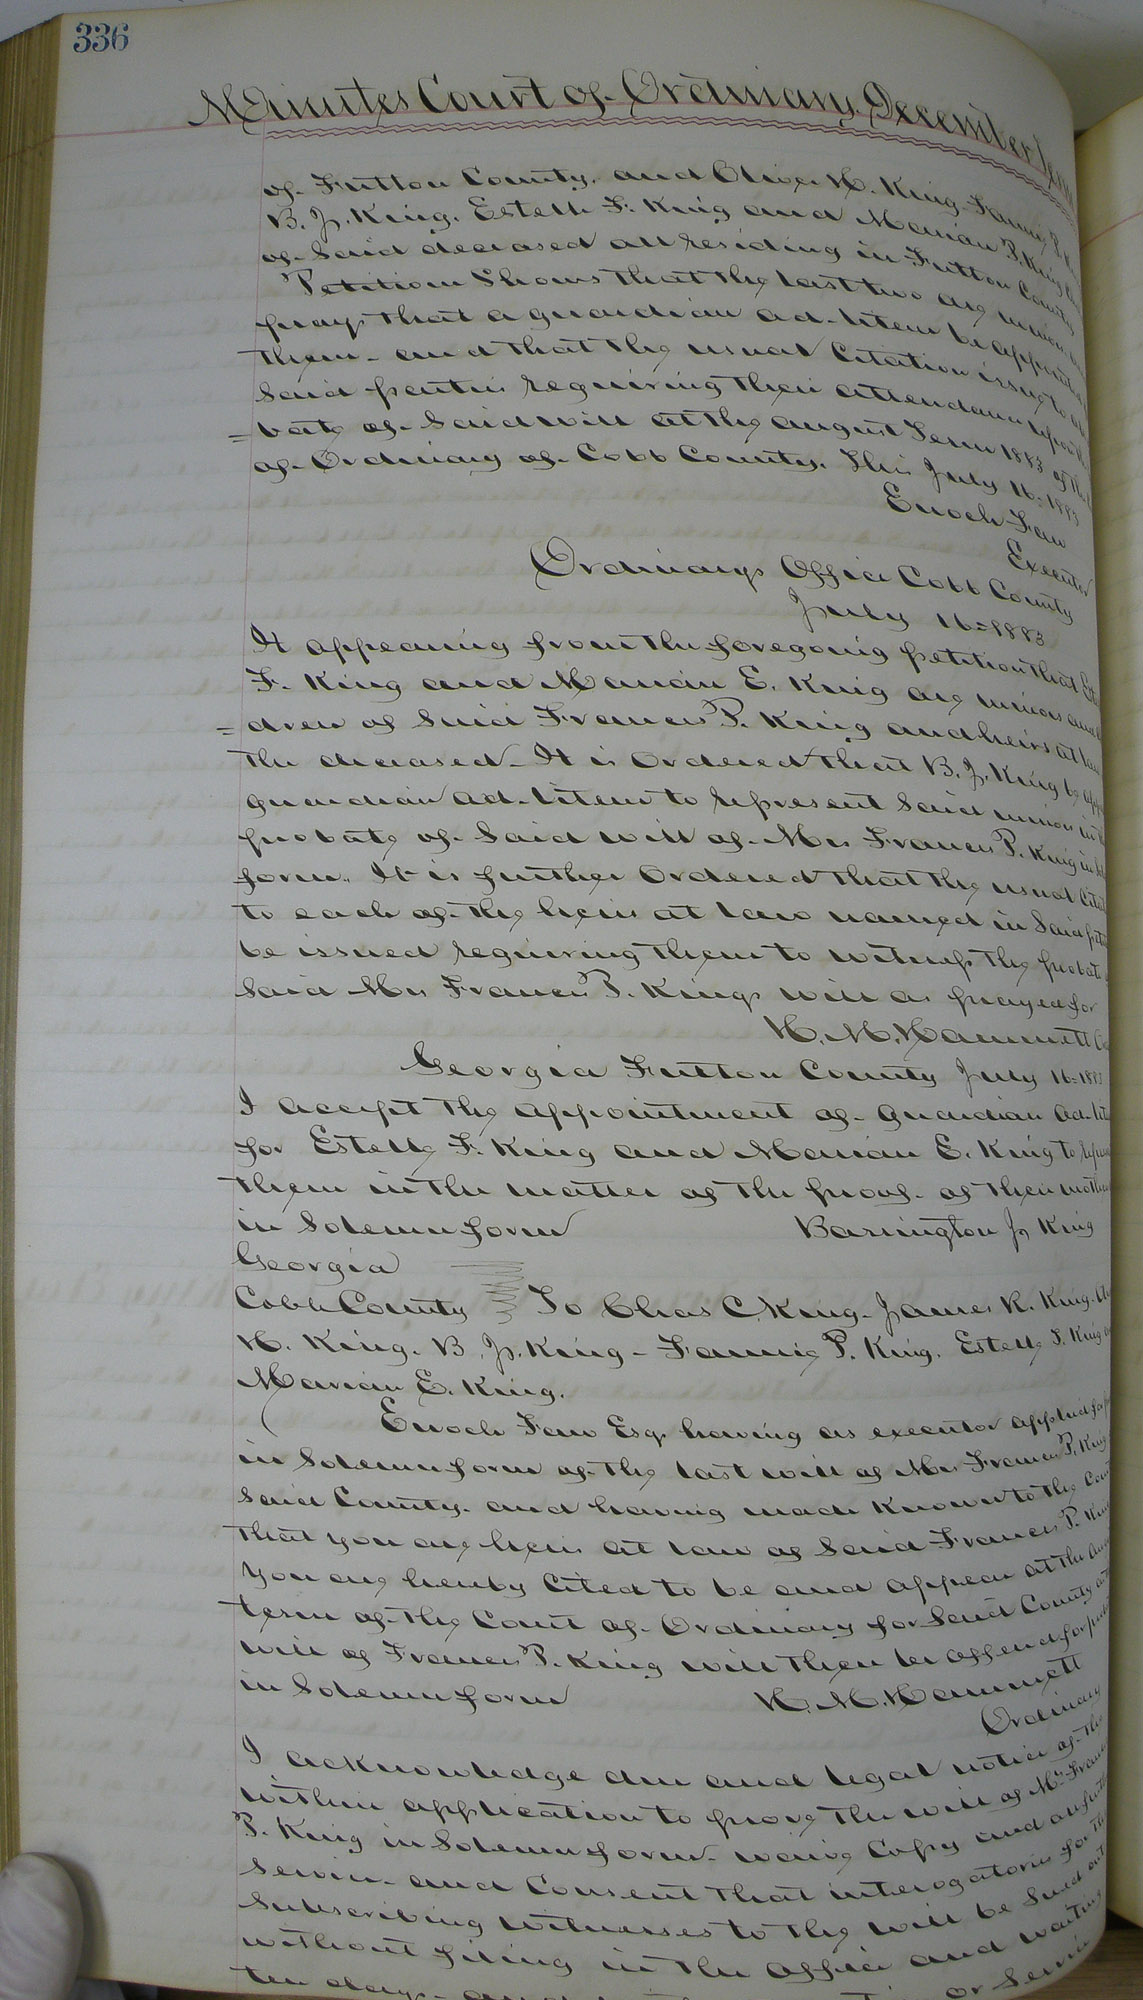 336
Minutes Court of Ordinary December Term
of Fulton County, and Clifford H. King Fannie P. King
B. J. King, Estelle F. King and Marian P. King
of Said deceased all residing in Fulton County
Petition Shows that the last two are minors and
pray that a guardian ad-litem be appointed
them - and that the usual Citation issue to
Said parties requiring their attendance before the
= bate of Said will at the August Term 1883 of the
of Ordinary of Cobb County. This July 16=1883
Enoch Faw
Executor
Ordinarys Office Cobb County
July 16=1883
It appearing from the foregoing petition that
F. King and Marian E. King are minors and
= dren of Said Frances P. King and heirs at law
the deceased - It is Ordered that B. J. King be
guardian ad-litem to represent Said minors in
probate of Said will of Mrs Frances P. King in
form. It is further Ordered that the usual
to each of the heirs at law named in Said
be issued requiring them to witness the probate
Said Mrs Frances P. Kings will as prayed for
H. M. Hammett
Georgia Fulton County July 16=188
I accept the appointment of guardian ad-
for Estelle F. King and Marian E. King to
them in the matter of the proof of their
in Solemn form Barrington J. King
Georgia
Cobb County To Chas C. King - James R. King -
H. King. B. J. King - Fannie P. King, Estelle F. King
Marian E. King.
Enoch Faw Esq. having as executor applied for
in Solemn form of the last will of Mrs Frances P. King
Said County. and having made known to the
that you are heirs at law of Said Frances P. King
You are hereby Cited to be and appear at the
term of the Court of Ordinary for Said County
will of Frances P. King will then be offered for
in Solemn form H. M. Hammett
Ordinary
I acknowledge due and legal notice of the
within application to prove the will of Mrs Frances
P. King in Solemn form - waive Copy and all further
Service and Consent that interogatories for the
Subscribing witnesses to the will be Sued out
without filing in the office and waiting
ten days - and or Service